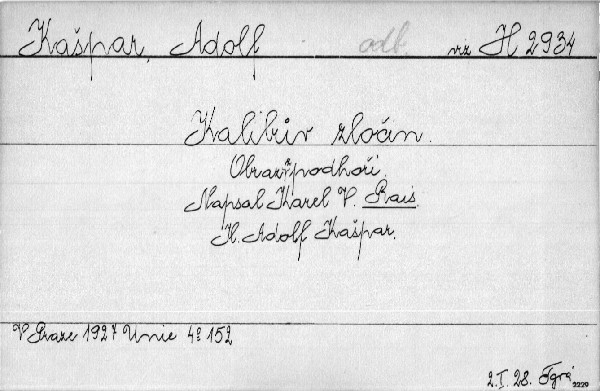 Kašpar, Adolf odb. viz H 2934
Kalibův zločin.
Obraz z podhoří.
Napsal Karel V. Rais.
Il. Adolf Kašpar.
V Praze 1927 Unie 4º 152
2.I.28. 2220